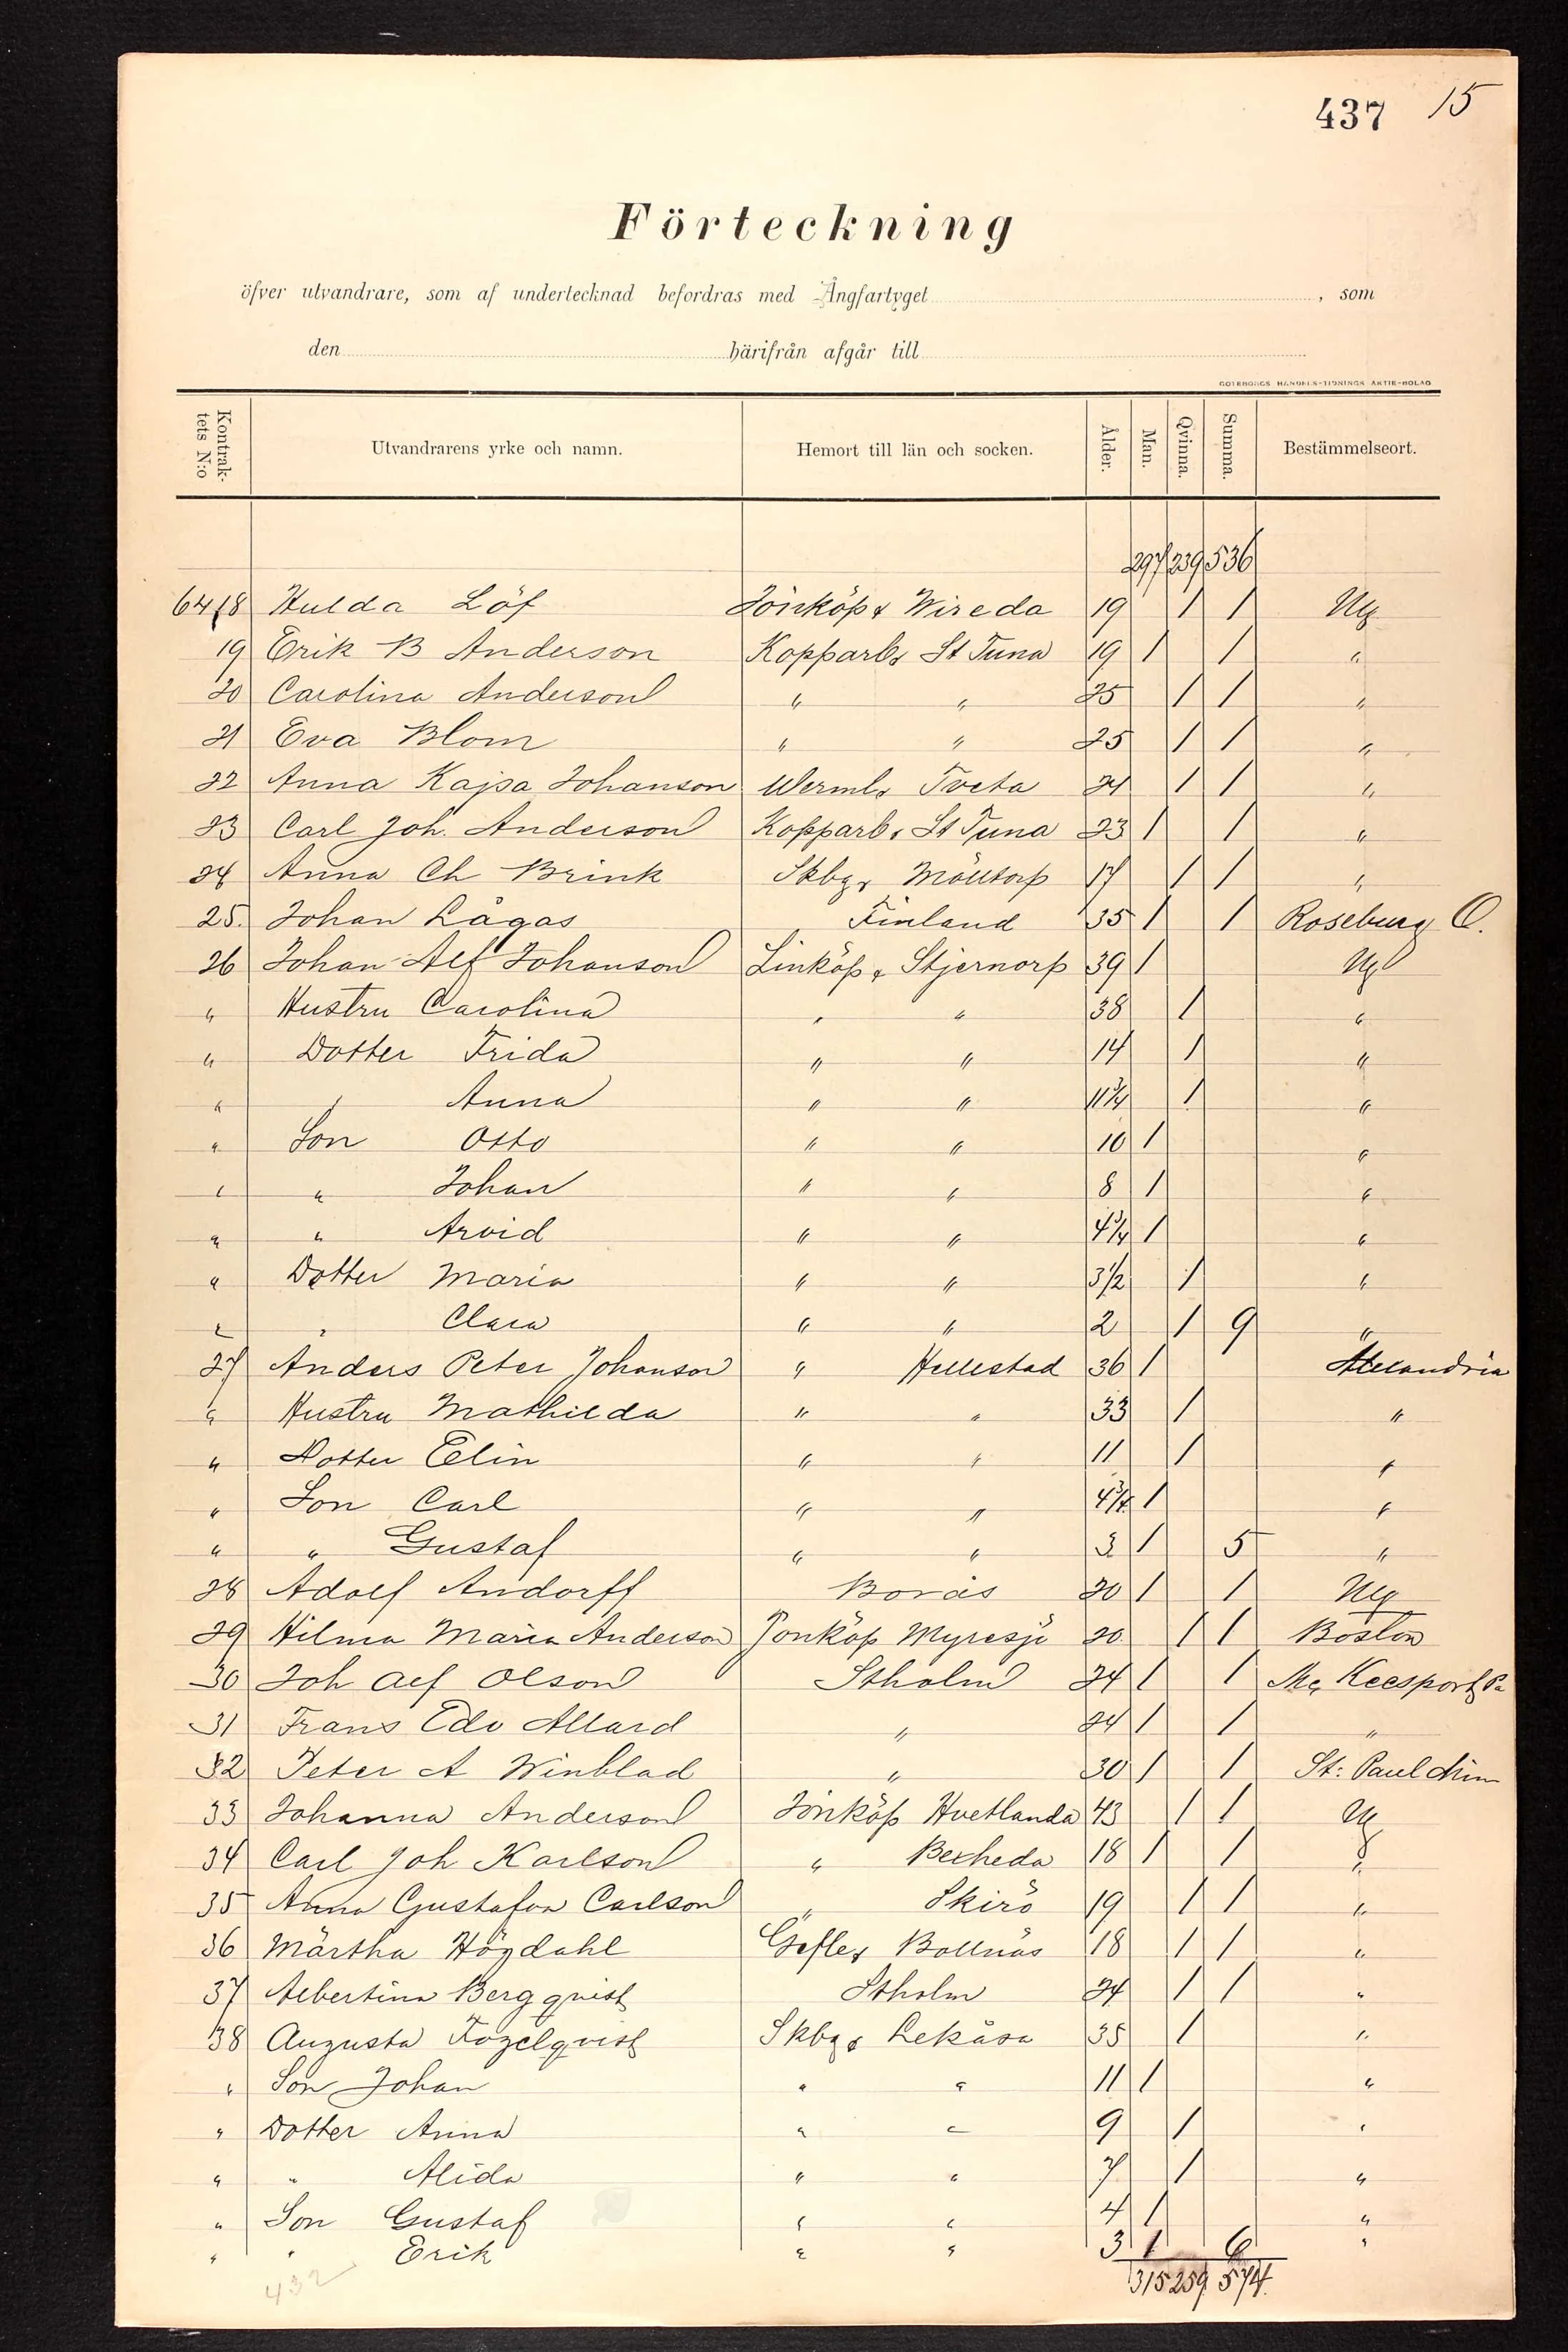 437 15
Förteckning
öfver utvandrare, som af undertecknad befordras med Ångfartyget , som
den härifrån afgår till
GÖTEBORGS HANDELS-TIDNINGS AKTIE-BOLAG
Kontraktets N:o Utvandrarens yrke och namn. Hemort till län och socken. Ålder. Man. Qvinna. Summa. Bestämmelseort.
297 239 536
6418 Hulda Löf Jönköps Wireda 19 1 1 Ny
19 Erik B Anderson Kopparbs St Tuna 19 1 1 "
20 Carolina Anderson " " 25 1 1 "
21 Eva Blom " " 25 1 1 "
22 Anna Kajsa Johanson Wermls Tveta 21 1 1 "
23 Carl Joh. Anderson Kopparbs St Tuna 23 1 1 "
24 Anna Ch Brink Skbgs Mölltorp 17 1 1 "
25. Johan Lågas Finland 35 1 1 Roseburg O.
26 Johan Alf Johanson Linköps Stjernorp 39 1 Ny
" Hustru Carolina " " 38 1 "
" Dotter Frida " " 14 1 "
" " Anna " " 11 3/4 1 "
" Son Otto " " 10 1 "
" " Johan " " 8 1 "
" " Arvid " " 4 3/4 1 "
" Dotter Maria " " 3 1/2 1 "
" " Clara " " 2 1 9 "
27 Anders Peter Johanson " Hellestad 36 1 Alexandria
" Hustru Mathilda " " 33 1 "
" Dotter Elin " " 11 1 "
" Son Carl " " 4 3/4 1 "
" " Gustaf " " 3 1 5 "
28 Adolf Andorff Borås 20 1 1 Ny
29 Hilma Maria Anderson Jonköp Myresjö 20 1 1 Boston
30 Joh Alf Olson Stholm 24 1 1 Mc Keesport Pa
31 Frans Edv Allard " 24 1 1 "
32 Peter A Winblad " 30 1 1 St: Paul Minn
33 Johanna Anderson Jönköp Hvetlanda 43 1 1 Ny
34 Carl Joh Karlson " Bexheda 18 1 1 "
35 Anna Gustafva Carlson " Skirö 19 1 1 "
36 Märtha Högdahl Gefles Bollnäs 18 1 1 "
37 Albertina Bergqvist Stholm 24 1 1 "
38 Augusta Fogelqvist Skbgs Lekåsa 35 1 "
" Son Johan " " 11 1 "
" Dotter Anna " " 9 1 "
" " Alida " " 7 1 "
" Son Gustaf " " 4 1 "
" " Erik " " 3 1 6 "
432
315 259 574.